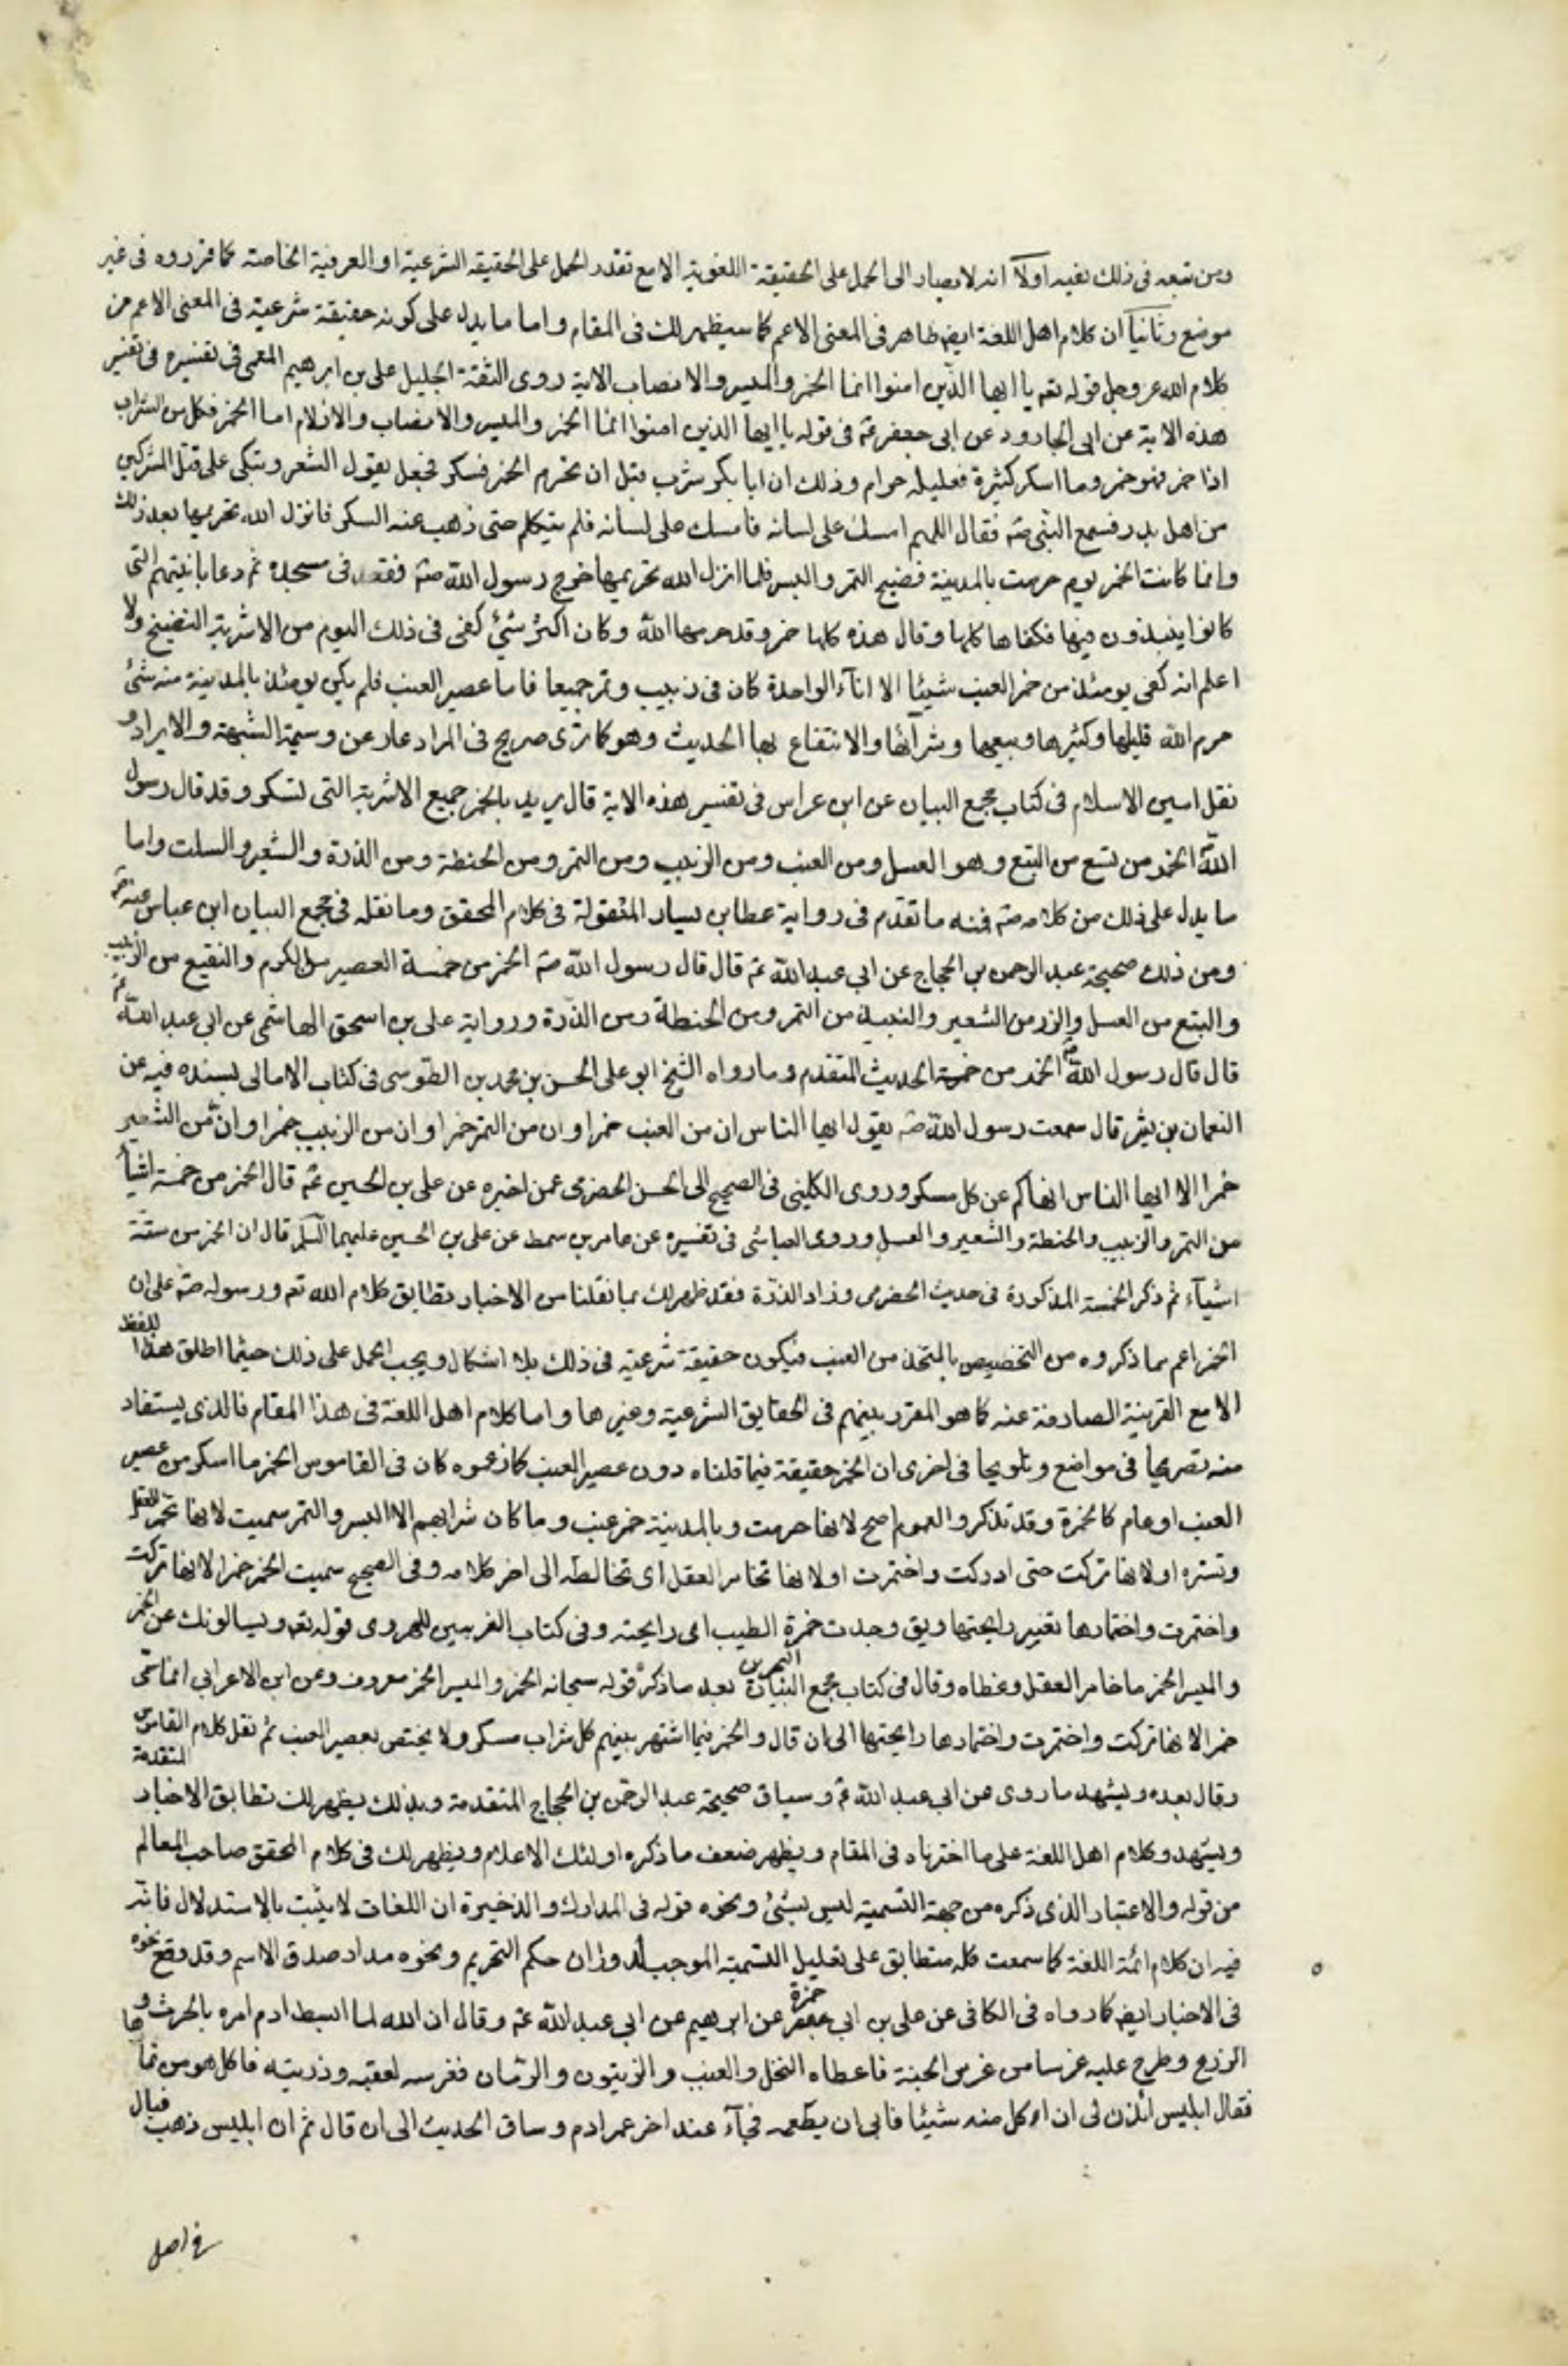 ومن تبعه فى ذلك ففيه اولاً انه لا يصار الى الحمل على الحقيقة اللغوية الا مع تعذر الحمل على الحقيقه الشرعية او العرفية الخاصة كما قرروه فى غير
موضع وثانياً ان كلام اهل اللغة ايض ظاهر فى المعنى الاعم كما سيظهر لك فى المقام واما ما يدل على كونه حقيقة شرعية فى المعنى الاعم من
كلام الله عز وجل قوله تع يا ايها الذين امنوا انما الخمر والميسر والانصاب الاية روى الثقة الجليل على بن ابرهيم القمى فى تفسيره فى تفسير
هذه الاية عن ابى الجارود عن ابى جعفر ع فى قوله يا ايها الذين امنوا انما الخمر والميسر والانصاب والازلام اما الخمر فكل من الشراب
اذا خمر فهو خمر وما اسكر كثيرة فقليله حرام وذلك ان ابا بكر شرب قبل ان تحرم الخمر فسكر فجعل يقول الشعر ويبكى على قتل المشركين
من اهل بدر فسمع النبى ص فقال اللهم امسك على لسانه فامسك على لسانه فلم يتكلم حتى ذهب عنه السكر فانزل الله تحريمها بعد ذلك
وانما كانت الخمر يوم حرمت بالمدينة فضيح التمر والبسر فلما انزل الله تحريمها خرج رسول الله ص فقعد فى مسجده ثم دعا بانيتهم التى
كانوا ينبذون فيها فكفاها كلها وقال هذه كلها خمر وقد حرمها الله وكان اكثر شئ كفى فى ذلك اليوم من الاشربة الفضيخ ولا
اعلم انه كفى يومئذ من خمر العنب شيئا الا اناء الواحدة كان فى زبيب وتمر جميعا فاما عصير العنب فلم يكن يومئذ بالمدينة منه شئ
حرم الله قليلها وكثيرها وبيعها وشرائها والانتفاع بها الحديث وهو كما ترى صريح فى المراد عار عن وسمة الشبهة والايراد و
نقل امين الاسلام فى كتاب مجمع البيان عن ابن عراس فى تفسير هذه الاية قال يريد بالخمر جميع الاشربة التى تسكر وقد قال رسول
الله الخمر من تسع من البتع وهو العسل ومن العنب ومن الزبيب ومن التمر ومن الحنطة ومن الذرة والشعير والسلت واما
ما يدل على ذلك من كلامه ص فمنه ما تقدم فى رواية عطا بن يسار المنقولة فى كلام المحقق وما نقله فى مجمع البيان ابن عباس عنه ص
ومن ذلك صحيحة عبد الرحمن بن الحجاج عن ابى عبد الله ع قال قال رسول الله ص الخمر من خمسة العصير من الكرم والنقيع من الزبيب
والبتع من العسل والزر من الشعير والنبيذ من التمر ومن الحنطة ومن الذرة ورواية على بن اسحق الهاشمى عن ابى عبد الله ع
قال قال رسول الله ص الخمر من خمسة الحديث المتقدم وما رواه الشيخ ابو على الحسن بن محمد بن الطوسى فى كتاب الامالى بسنده فيه عن
النعمان بن بشر قال سمعت رسول الله ص يقول ايها الناس ان من العنب خمرا وان من التمر خمرا وان من الزبيب خمرا وان من الشعير
خمرا الا ايها الناس انهاكم عن كل مسكر وروى الكلينى فى الصحيح الى الحسن الحضرمى عمن اخبره عن على بن الحسين ع قال الخمر من خمسة اشيا
من التمر والزبيب والحنطة والشعير والعسل وروى العياشى فى تفسيره عن عامر بن سمط عن على بن الحسين عليهما السلم قال ان الخمر من ستة
اشياء ثم ذكر الخمسة المذكورة فى حديث الحضرمى وزاد الذرة فقد ظهر لك بما نقلنا من الاخبار تطابق كلام الله تع ورسوله ص على ان
الخمر اعم مما ذكروه من التخصيص بالمتخذ من العنب فيكون حقيقة شرعية فى ذلك بلا اشكال ويجب الحمل على ذلك حيثما اطلق هذا اللفظ
الا مع القرينة الصارفة عنه كما هو المقرر بينهم فى الحقايق الشرعية وغيرها واما كلام اهل اللغة فى هذا المقام فالذى يستفاد
منه تصريحا فى مواضع وتلويحا فى اخرى ان الخمر حقيقة فيما قلناه دون عصير العنب كما زعموه كان فى القاموس الخمر ما اسكر من عصير
العنب او عام كالخمرة وقد تذكر والعموم اصح لانها حرمت وبالمدينة خمر عنب وما كان شرابهم الا البسر والتمر سميت لانها تخمر العقل
وتستره او لانها تركت حتى ادركت واختمرت او لانها تخامر العقل اى تخالطه الى اخر كلامه وفى الصحيح سميت الخمر خمرا لانها تركت
واختمرت واختمارها تغيير رايحتها ويق وجدت خمرة الطيب اى رايحته وفى كتاب الغريبين للهروى قوله تع ويسالونك عن الخمر
والميسر الخمر ما خامر العقل وغطاه وقال فى كتاب مجمع البحرين بعد ما ذكر قوله سبحانه الخمر والميسر الخمر معروف وعن ابن الاعرابى انما سمى
خمرا لانها تركت واختمرت واختمارها رايحتها الى ان قال والخمر فيما اشتهر بينهم كل شراب مسكر ولا يختص بعصير العنب ثم نقل كلام القاموس المتقدمة
وقال بعده ويشهد ما روى عن ابى عبد الله ع وسياق صحيحة عبد الرحمن بن الحجاج المتقدمة وبذلك يظهر لك تطابق الاخبار
ويشهد وكلام اهل اللغة على ما اخترناه فى المقام ويظهر ضعف ما ذكره اولئك الاعلام ويظهر لك فى كلام المحقق صاحب المعالم
من قوله والاعتبار الذى ذكره من جهة التسمية ليس بشئ ونحوه قوله فى المدارك والذخيرة ان اللغات لا يثبت بالاستدلال فانه
فيه ان كلام ائمة اللغة كما سمعت كله متطابق على تعليل التسمية الموجب لدوران حكم التحريم ونحوه مدار صدق الاسم وقد وقع نحوه
فى الاخبار ايض كما رواه فى الكافى عن على بن ابى حمزة عن ابرهيم عن ابى عبد الله ع وقال ان الله لما اهبط ادم امره بالحرث و
الزرع وطرح عليه غرسا من غرس الجنة فاعطاه النخل والعنب والزيتون والرمان فغرسه لعقبه وذريته فاكل هو من ثمارها
فقال ابليس ائذن لى ان اكل منه شيئا فابى ان يطعمه فجاء عند اخر عمر ادم وساق الحديث الى ان قال ثم ان ابليس ذهب فبال
فى اصل